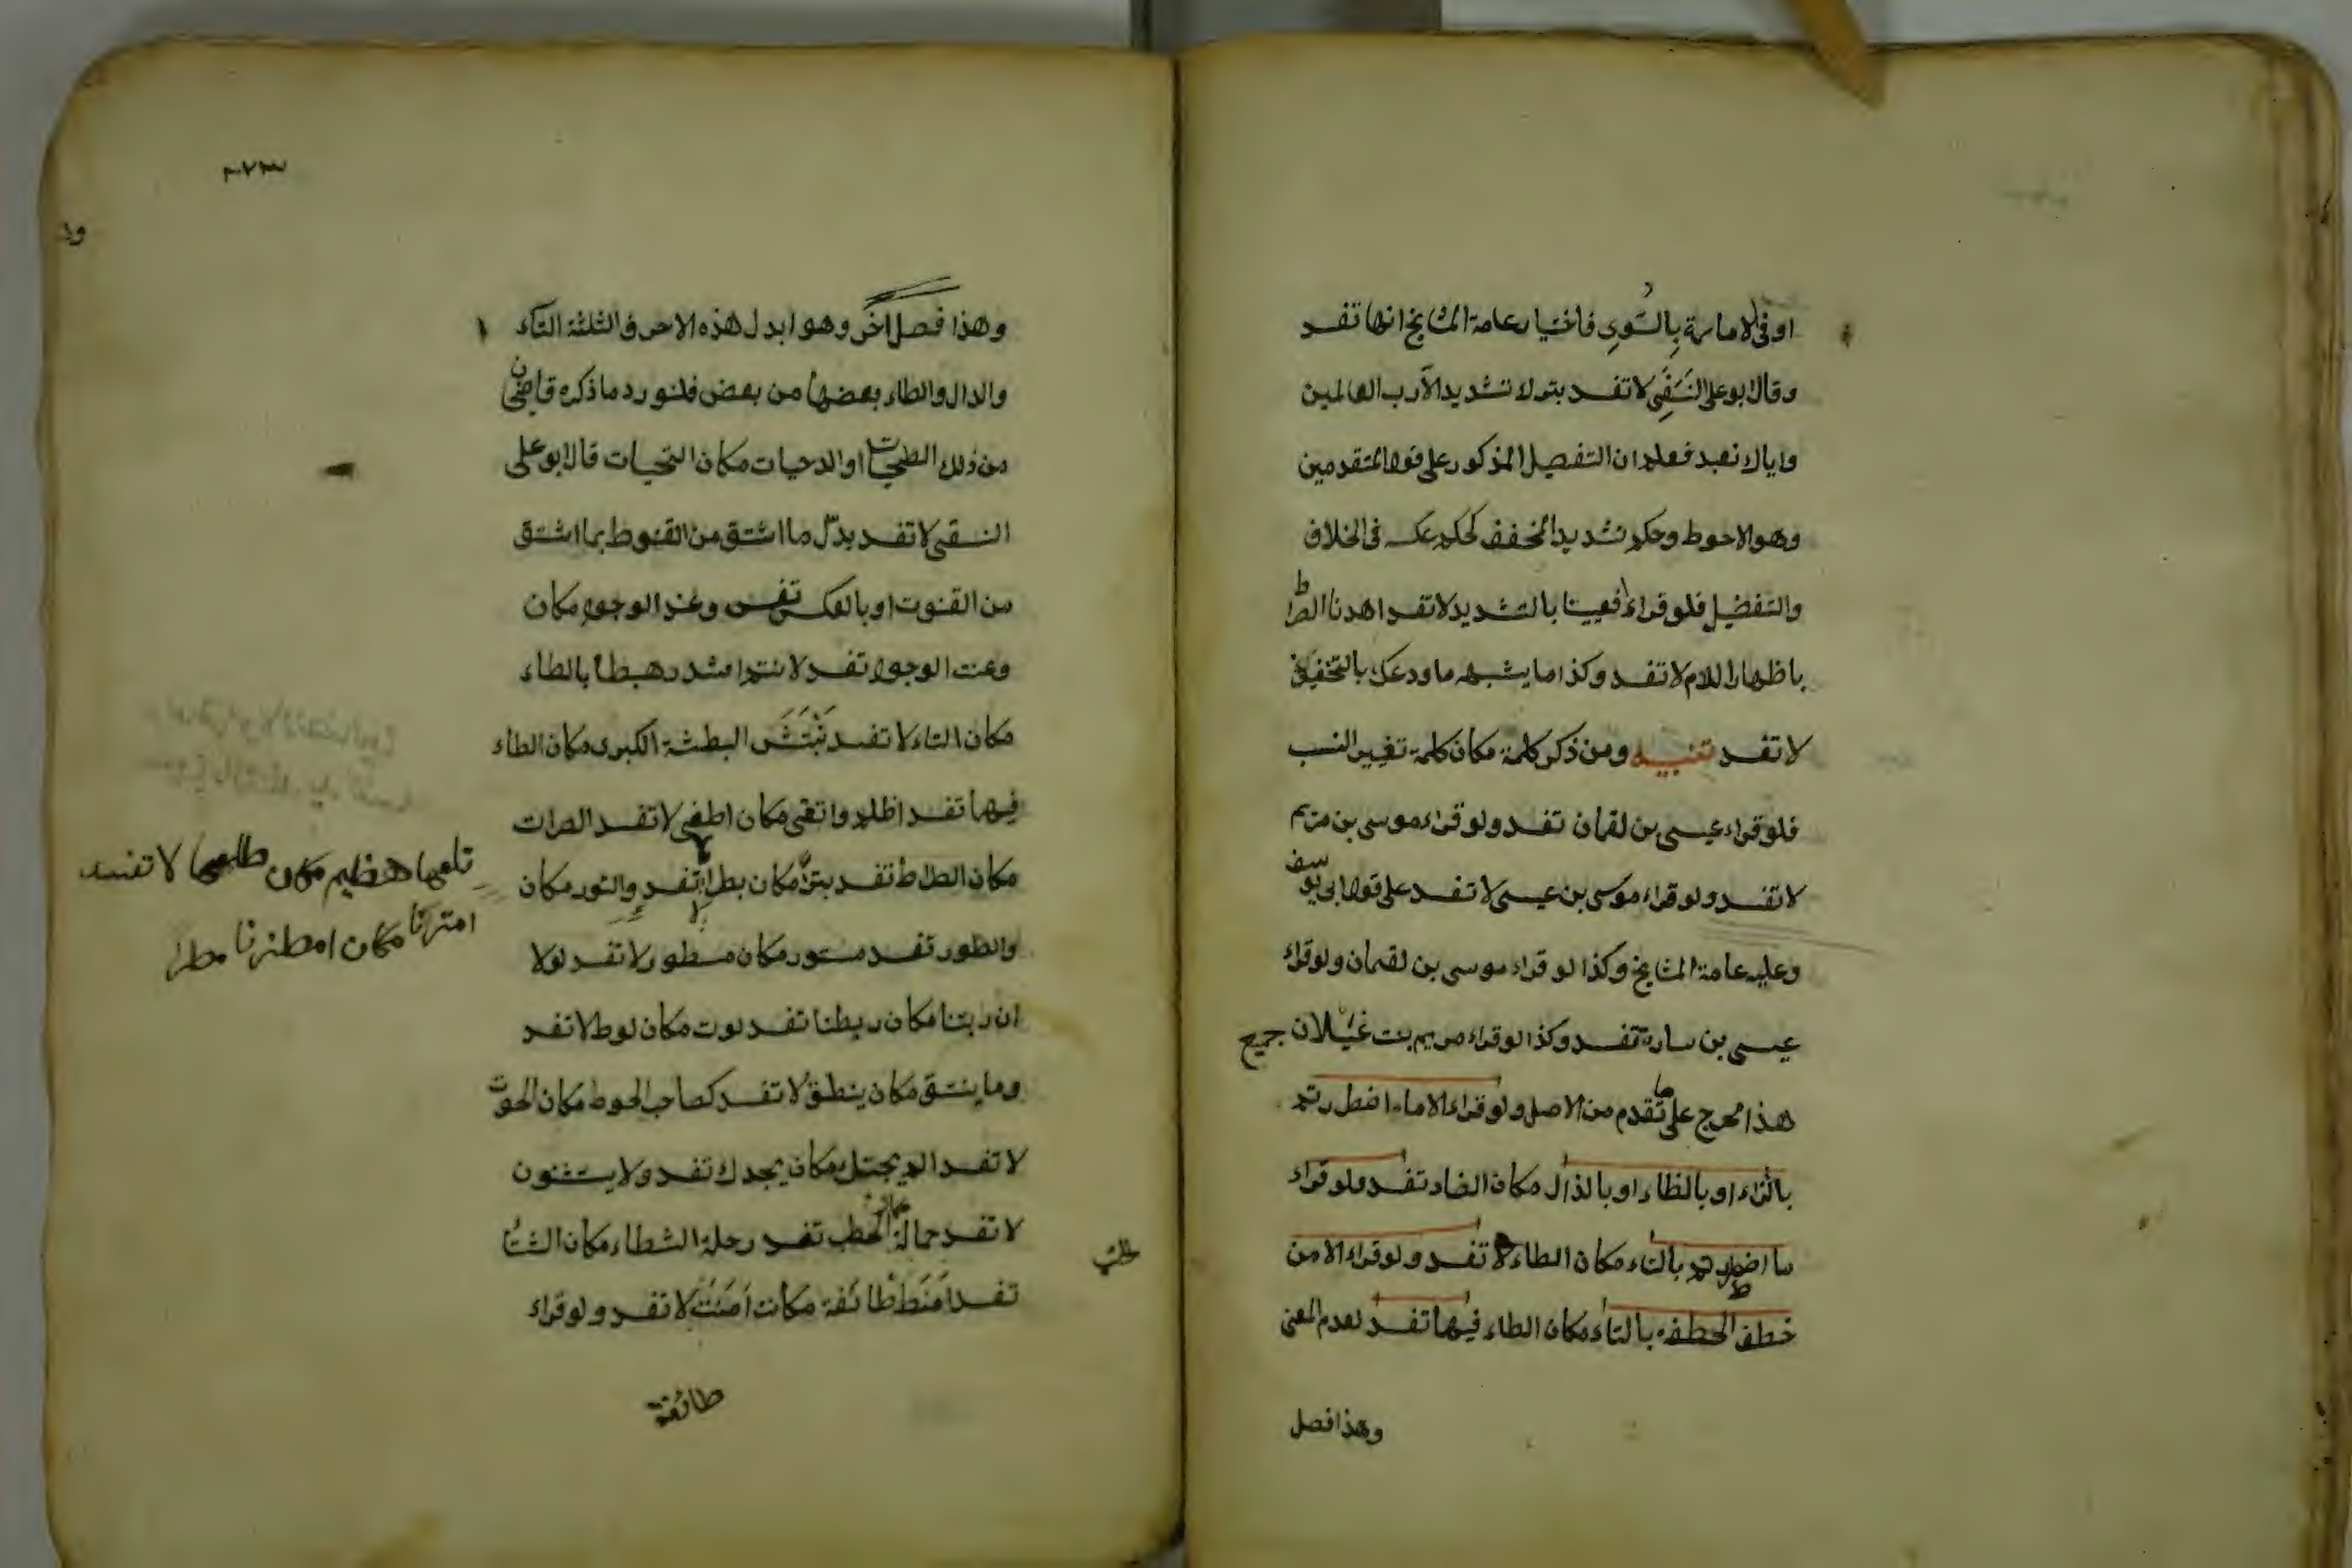 او في لامارة بالسوء فاختيار عامة المشايخ انها تفسد
وقال ابو علي النسفي لا تفسد بترك تشديد الا رب العالمين
واياك نعبد فعلم ان التفصيل المذكور على قول المتقدمين
وهو الاحوط وحكم تشديد المخفف كحكم عكسه في الخلاف
والتفضيل فلو قراء افعيينا بالتشديد لا تفسد اهدنا الصراط
باظهار اللام لا تفسد وكذا ما يشبهه ما ودعك بالتخفيف
لا تفسد تنبيه ومن ذكر كلمة مكان كلمة تغيير النسب
فلو قراء عيسى بن لقمان تفسد ولو قراء موسى بن مريم
لا تفسد ولو قراء موسى بن عيسى لا تفسد على قول ابي يوسف
وعليه عامة المشايخ وكذا لو قراء موسى بن لقمان ولو قراء
عيسى بن سارة تفسد وكذا لو قراء مريم بنت غيلان جميع
هذا مخرج على ما تقدم من الاصل ولو قراء الا ما اضطررتم
بالتاء او بالظاء او بالذال مكان الضاد تفسد ولو قراء
ما اضطررتم بالتاء مكان الطاء لا تفسد ولو قراء الا من
خطف الخطفة بالتاء مكان الطاء فيها تفسد لعدم المعنى
وهذا فصل
٢٧٣
وهذا فصل اخر وهو ابدل هذه الاحرف الثلثة التاء
والدال والطاء بعضها من بعض فلنورد ما ذكره قاضي
من ذلك الطحيات او الدحيات مكان التحيات قال ابو علي
النسفي لا تفسد بدل ما اشتق من القنوط بما اشتق
من القنوت او بالعكس تفسد وعند الوجوه مكان
وعنت الوجوه تفسد لا تفسد هبطا بالطاء
مكان التاء لا تفسد نبتش البطشة الكبرى مكان الطاء
فيها تفسد اظلم واتغى مكان اطغى لا تفسد الصرات
مكان الصراط تفسد بترا مكان بطرا تفسد والتور مكان
والطور تفسد مستور مكان مسطور لا تفسد لولا
ان ربتنا مكان ربطنا تفسد لوت مكان لوط لا تفسد
وما ينتق مكان ينطق لا تفسد كصاحب الحوط مكان الحوت
لا تفسد الم يجتك مكان يجدك تفسد ولا يستثنون
لا تفسد حمالة الحطب تفسد رحلة الشطاء مكان الشتا
تفسد امنط طائفة مكان امنت لا تفسد ولو قراء
تلعها هضيم مكان طلعها لا تفسد
امترنا مكان امطرنا مطرا
طائفة